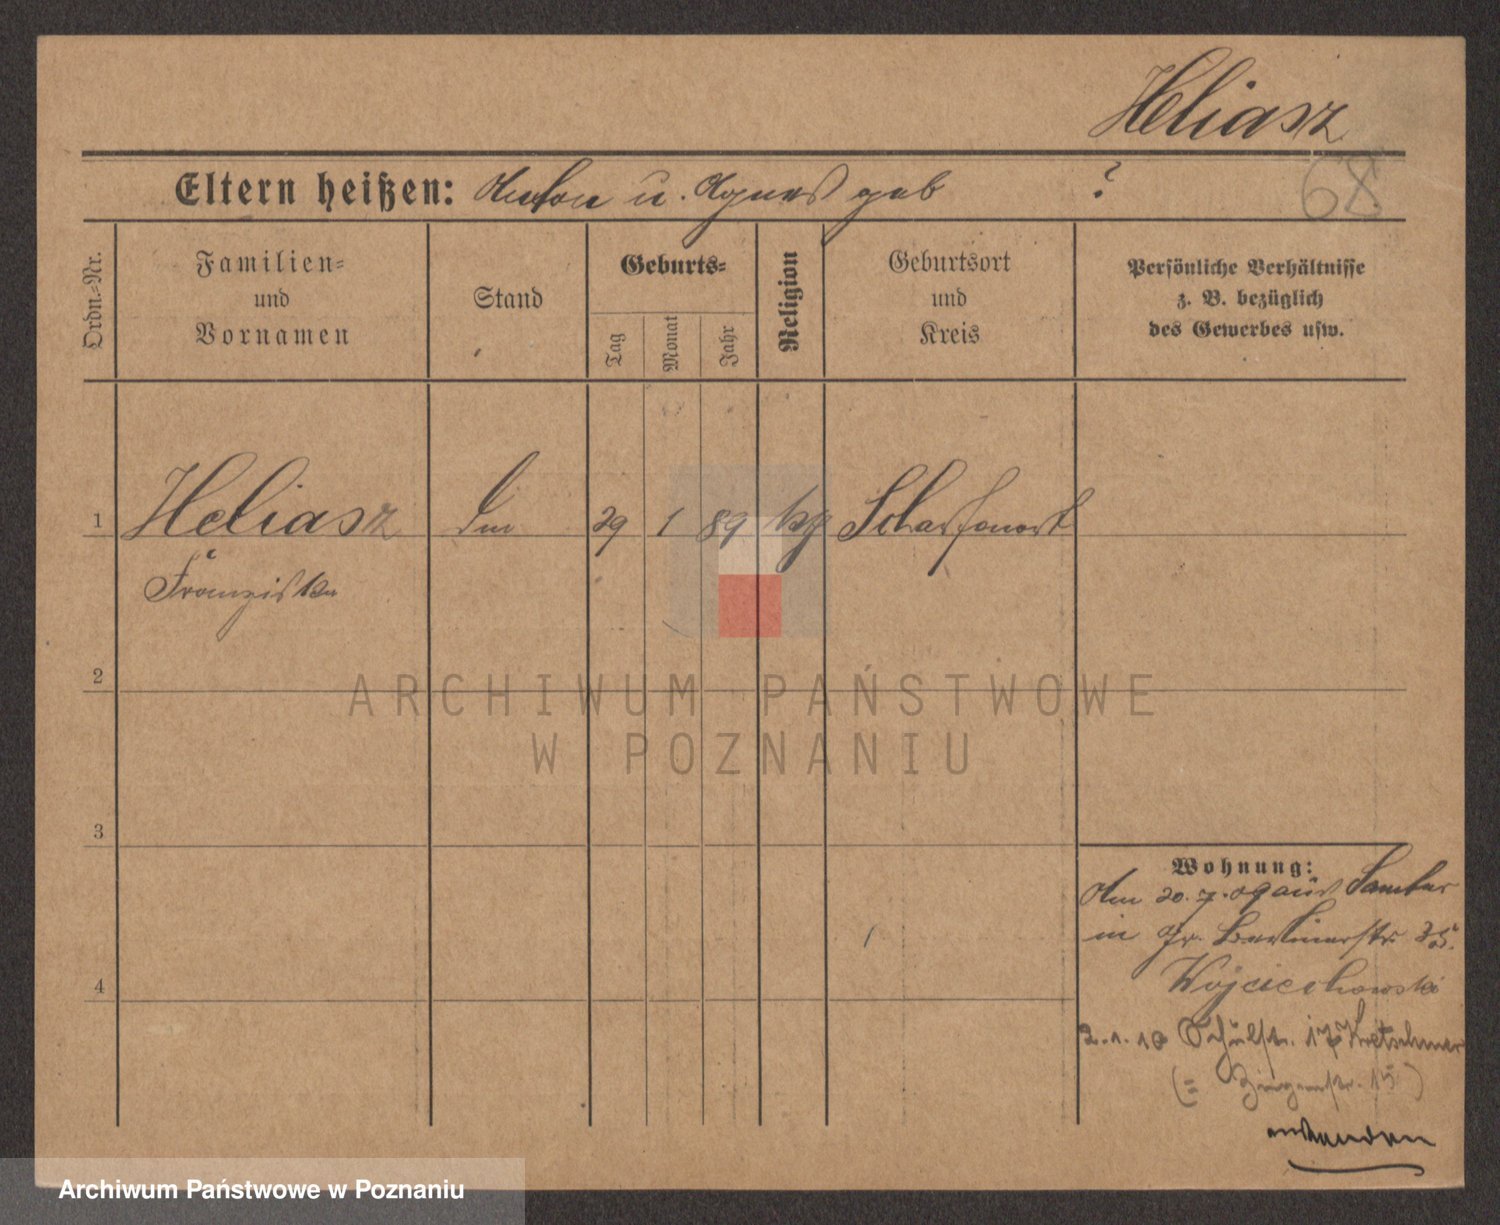 Heliasz
68
Eltern heißen: Anton u. Agnes geb ?
Ordn.-Nr.
Familien-
und
Vornamen
Stand
Geburts-
Tag
Monat
Jahr
Religion
Geburtsort
und
Kreis
Persönliche Verhältnisse
z. B. bezüglich
des Gewerbes usw.
1 Heliasz 29 1 89 Scharfenort
Franziska
2
3
4
Wohnung:
Am 20.7.09 aus Samter
in Gr. Berlinerstr. 35.
Wojciechowski
2.1.10 Schülstr. 17 Kretschmer
ARCHIWUM PAŃSTWOWE
W POZNANIU
Archiwum Państwowe w Poznaniu